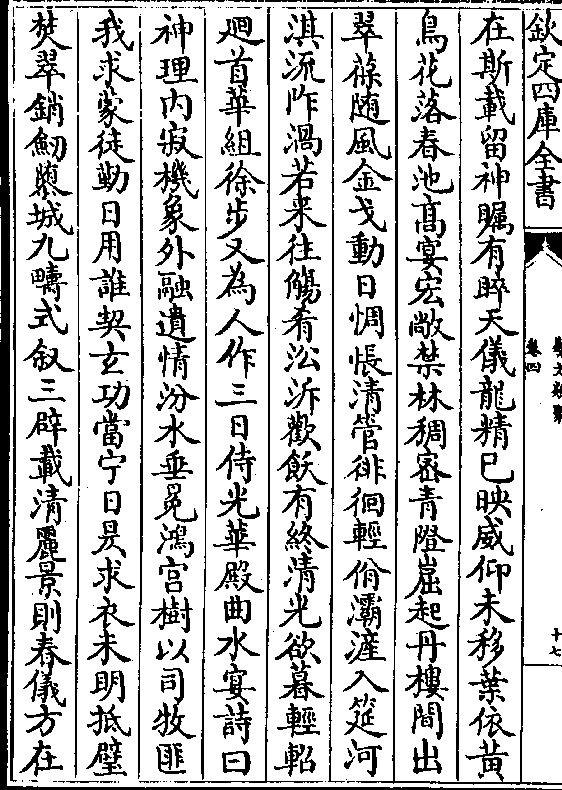 欽定四庫全書
藝文類聚
卷四
十七
在斯載留神矚有睟天儀龍精已映威仰未移葉依黄
鳥花落春池髙宴宏敞禁林稠宻青隥崛起丹樓間出
翠葆随風金戈動日惆悵清管徘徊輕佾灞滻入筵河
淇流阼渦若来往觴肴沿泝歡飫有終清光欲暮輕軺
廻首華組徐步又為人作三日侍光華殿曲水宴詩曰
神理内寂機象外融遺情汾水垂冕鴻宫樹以司牧匪
我求蒙徒勤日用誰契𤣥功當宁日昃求衣未明抵璧
焚翠銷劒隳城九疇式叙三辟載清麗景則春儀方在